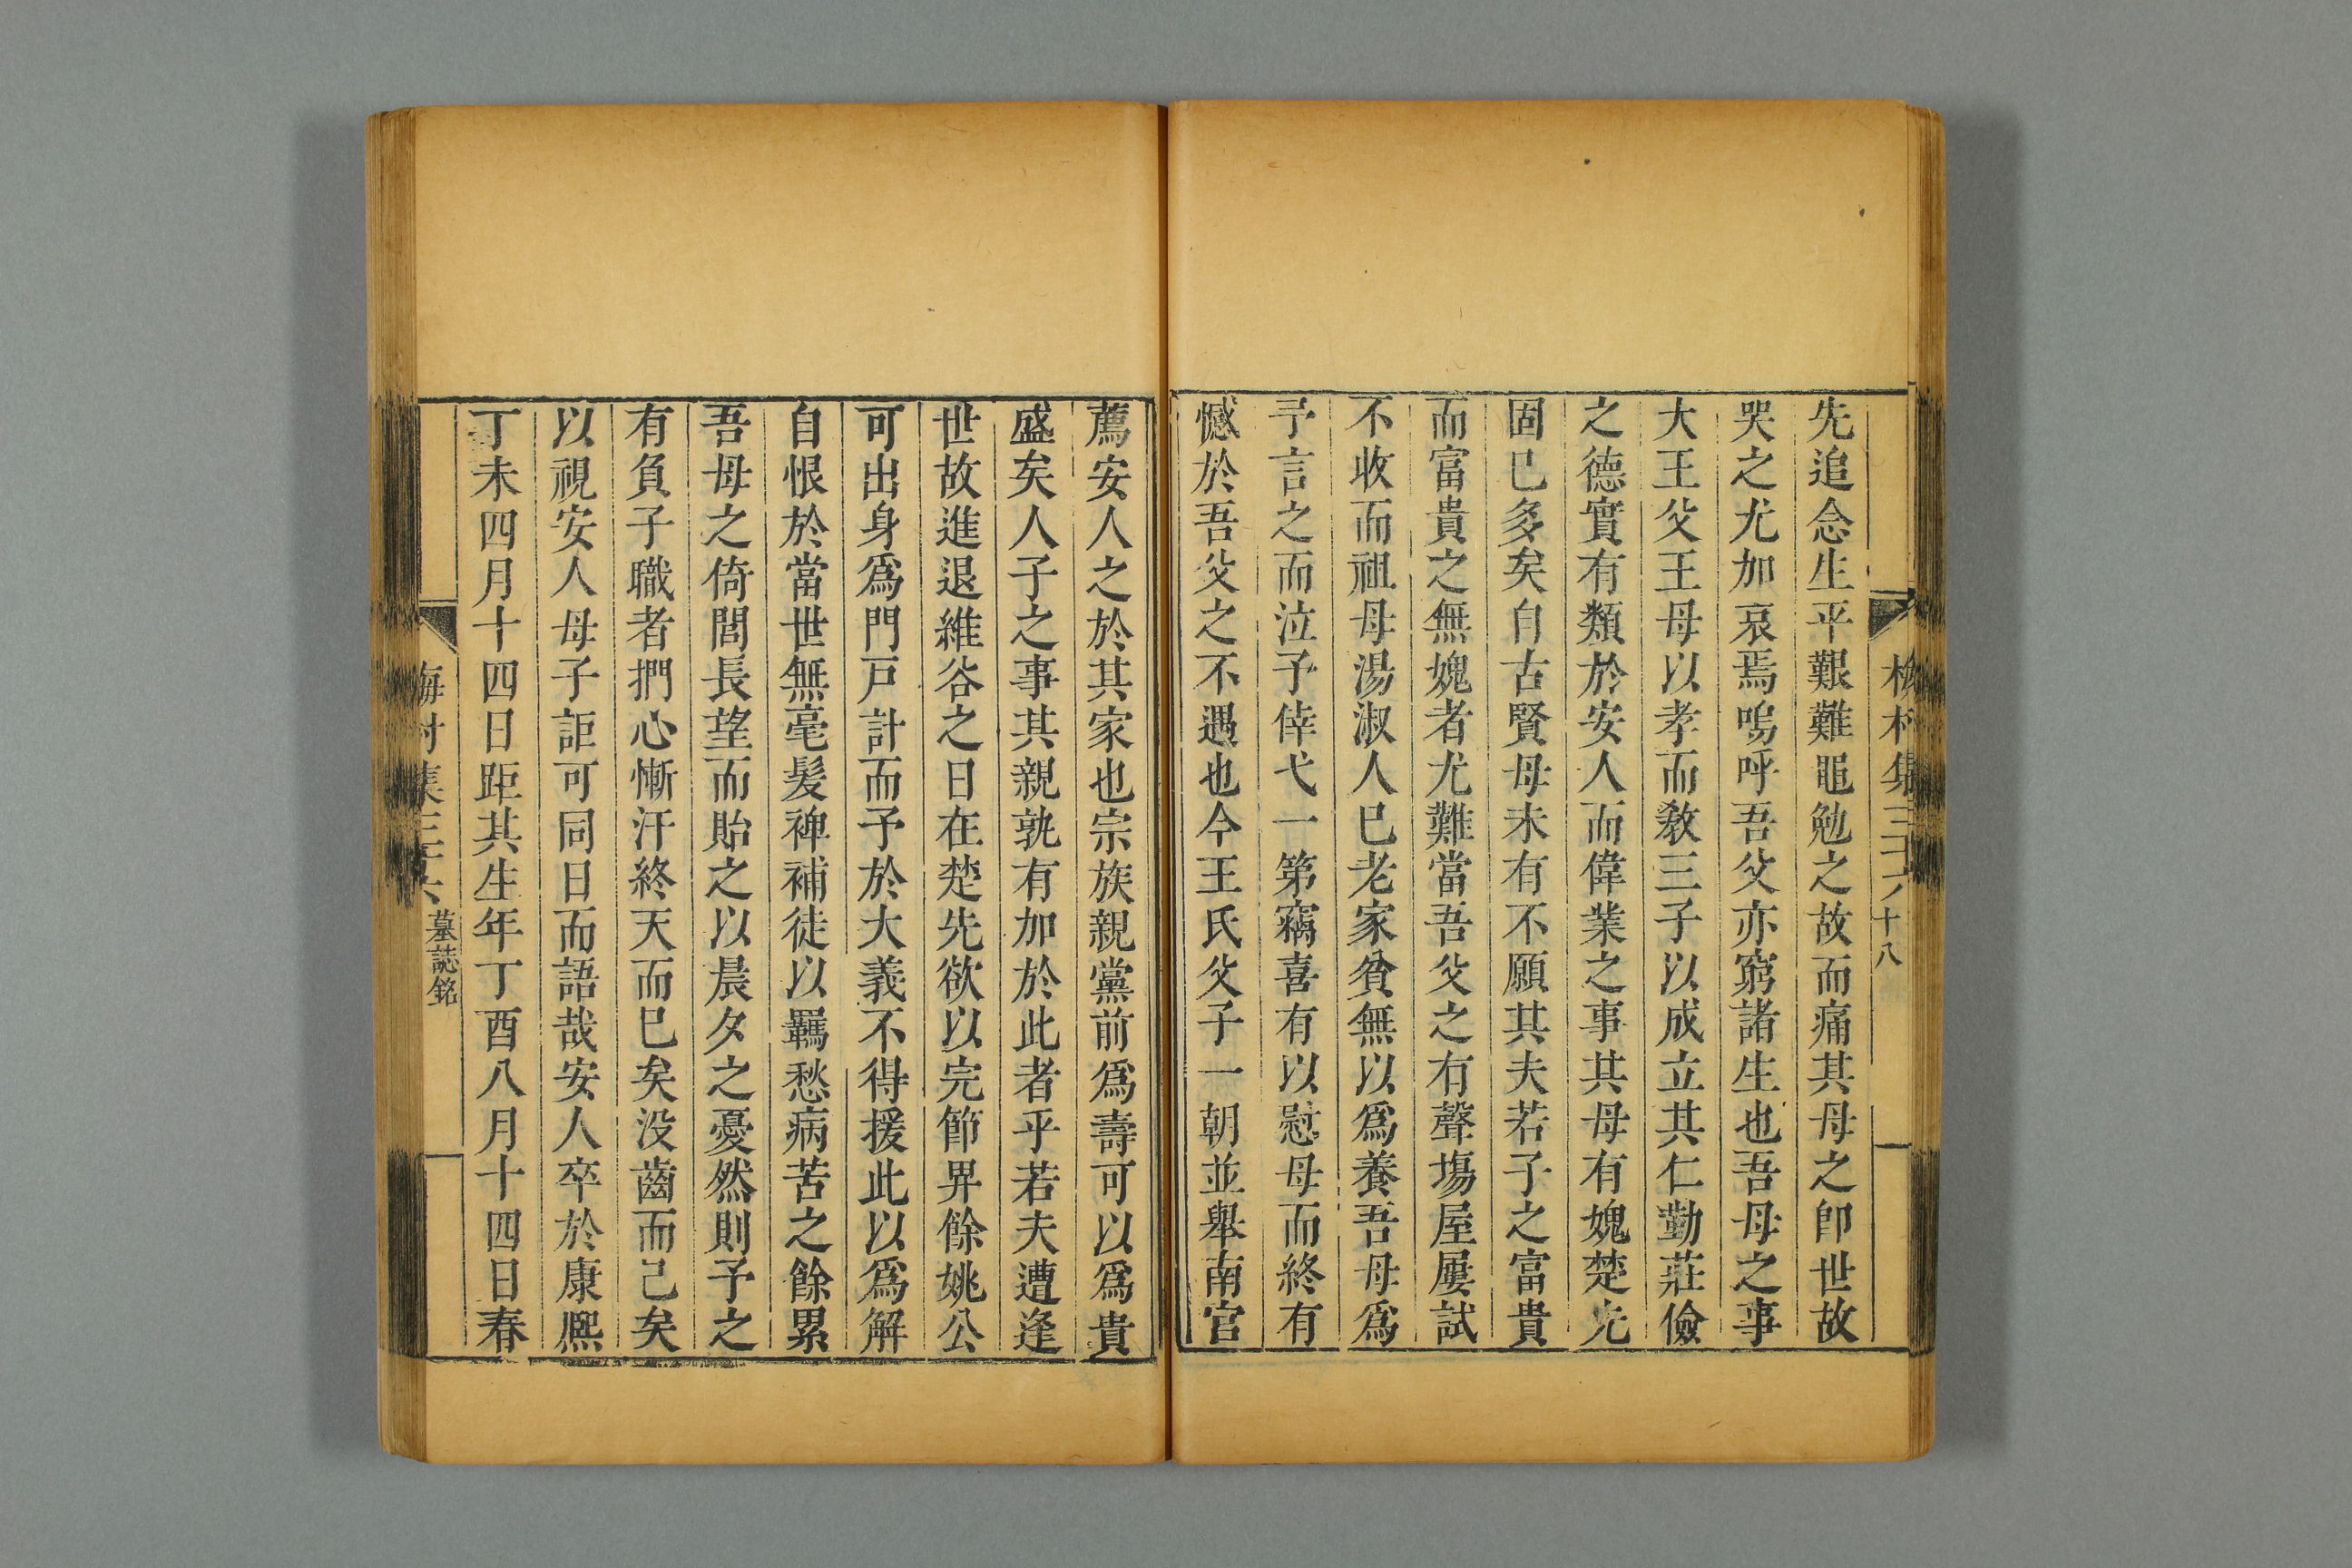 先追念生平艱難黽勉之故而痛其母之卽世故
哭之尤加哀焉嗚呼吾父亦窮諸生也吾母之事
大王父王母以孝而敎三子以成立其仁勤莊儉
之德實有類於安人而偉業之事其母有媿楚先
固已多矣自古賢母未有不願其夫若子之富貴
而富貴之無媿者尤難當吾父之有聲塲屋屢試
不收而祖母湯淑人已老家貧無以爲養吾母爲
予言之而泣予倖弋一第竊喜有以慰母而終有
憾於吾父之不遇也今王氏父子一朝並舉南宫
十八
薦安人之於其家也宗族親黨前爲壽可以爲貴
盛矣人子之事其親孰有加於此者乎若夫遭逢
世故進退維谷之日在楚先欲以完節畀餘姚公
可出身爲門戸計而予於大義不得援此以爲解
自恨於當世無毫髮裨補徒以羈愁病苦之餘累
吾母之倚閭長望而貽之以晨夕之憂然則予之
有負子職者捫心慚汗終天而已矣没齒而已矣
以視安人母子詎可同日而語哉安人卒於康熈
丁未四月十四日距其生年丁酉八月十四日春
梅村集三十六 墓誌銘